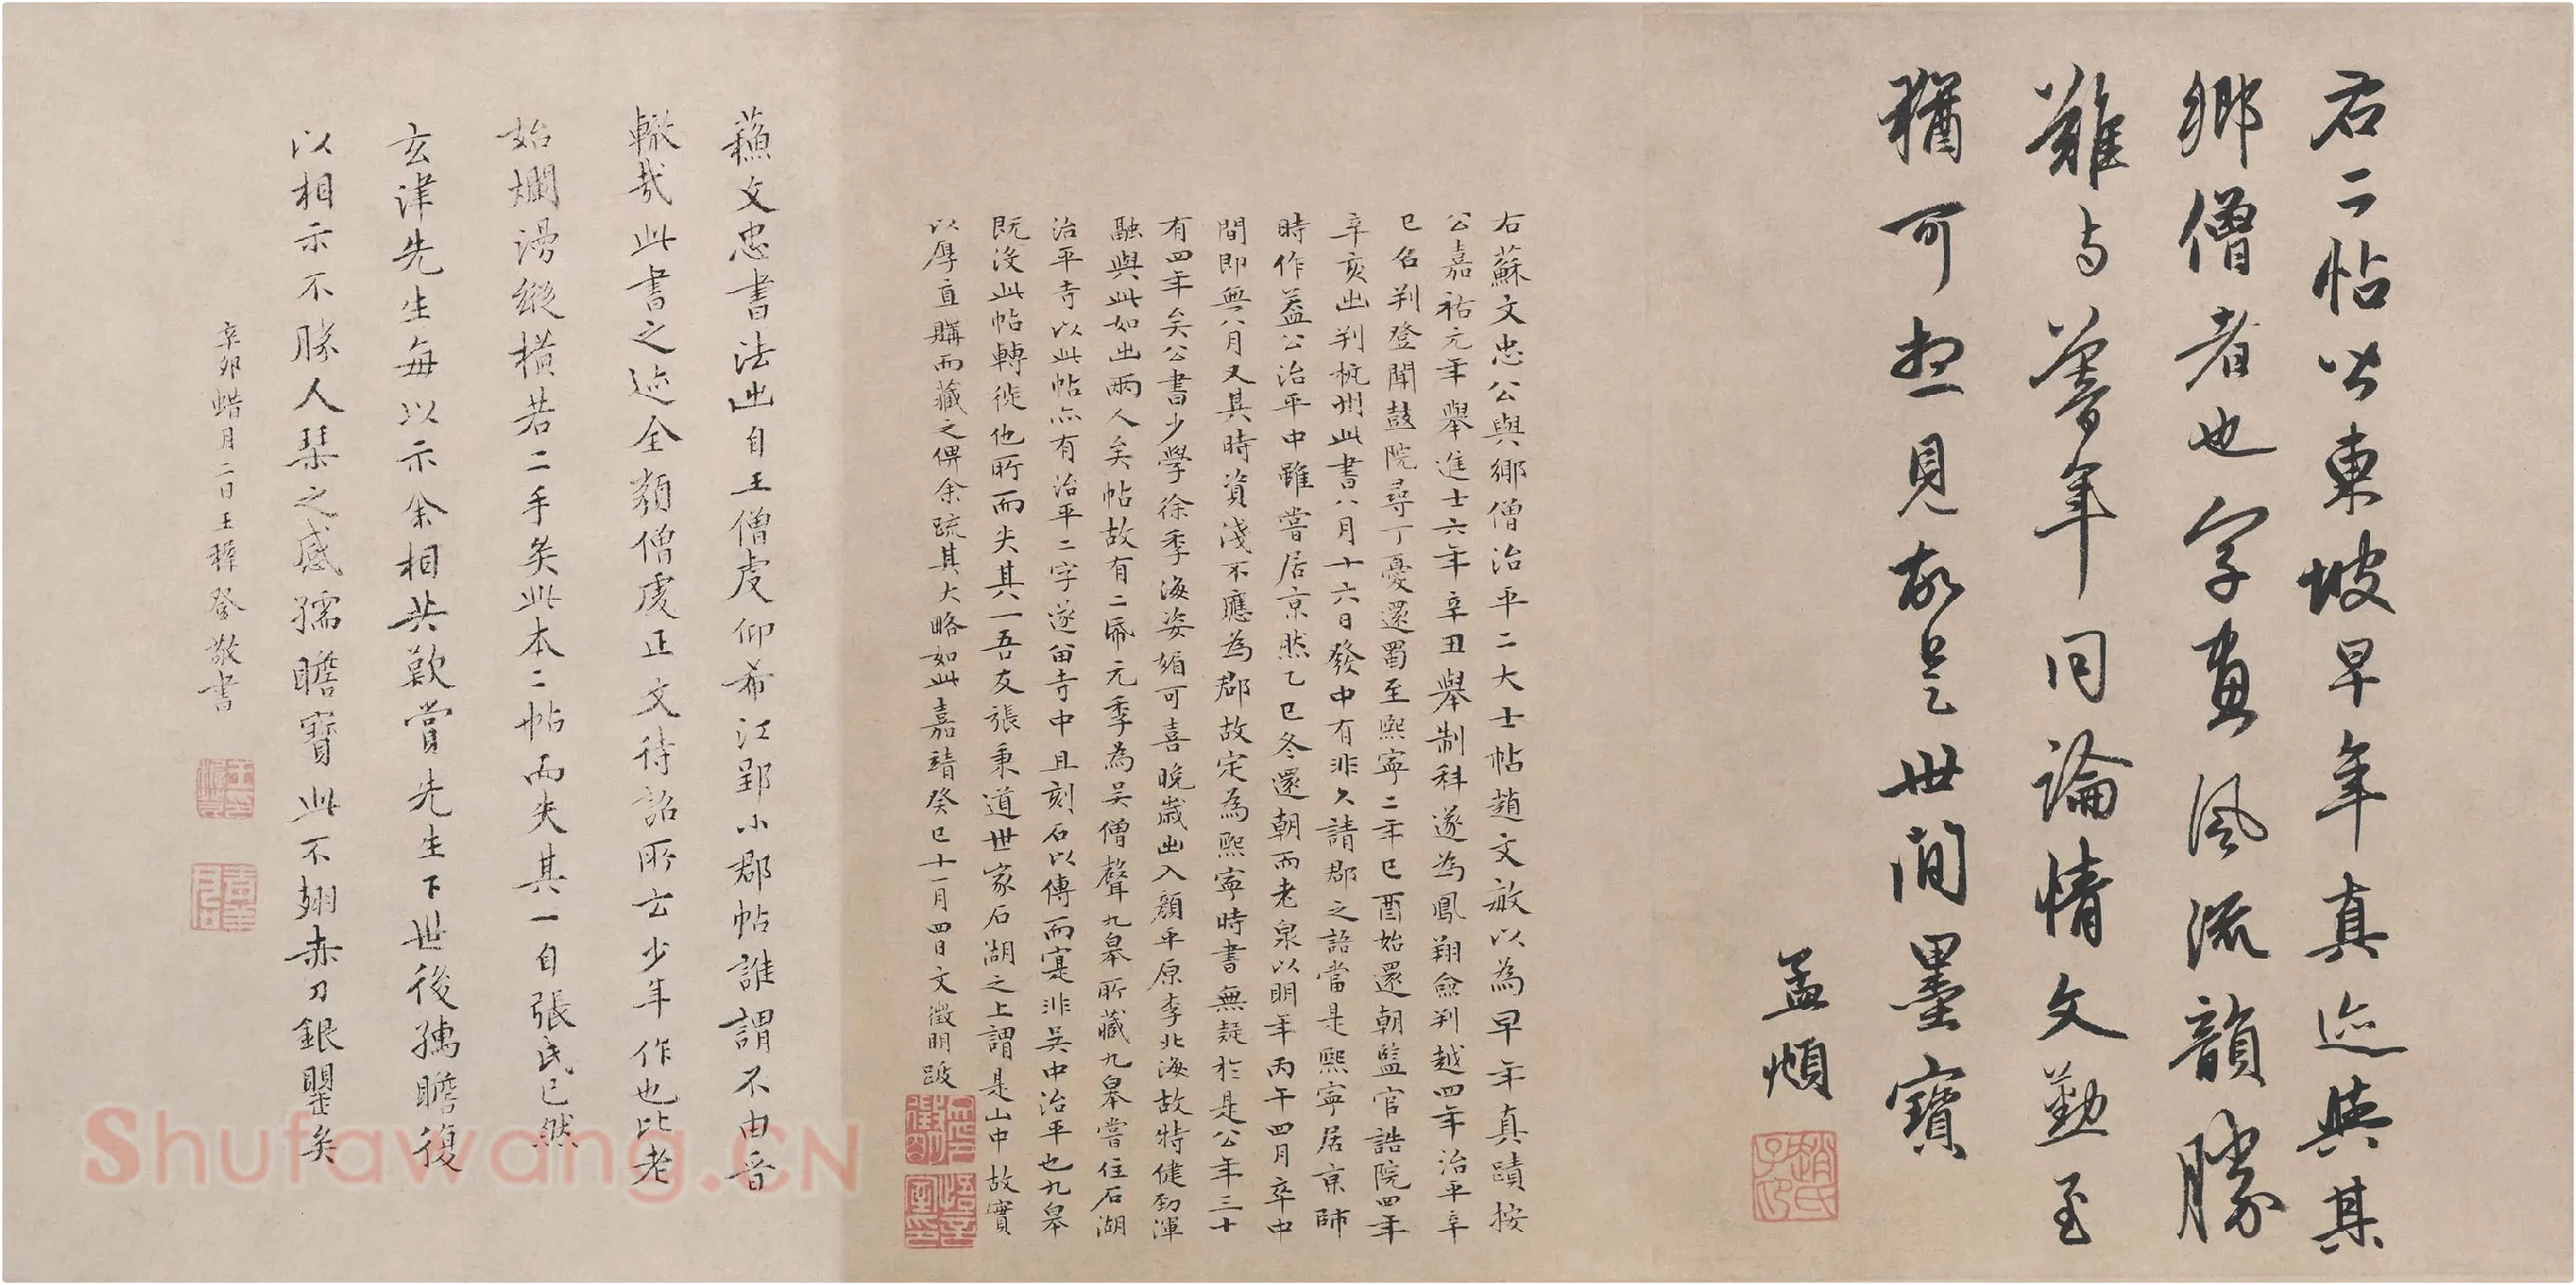 右二帖皆東坡早年真迹與其
鄉僧者也字畫風流韻勝
難与暮年同論情文勤至
猶可想見故是世間墨寶
孟頫
右蘇文忠公與鄉僧治平二大士帖趙文敏以為早年真蹟按
公嘉祐元年舉進士六年辛丑舉制科遂為鳳翔僉判越四年治平辛
巳召判登聞鼓院尋丁憂還蜀至熙寧二年巳酉始還朝監官誥院四年
辛亥出判杭州此書八月十六日發中有非久請郡之語當是熙寧居京師
時作葢公治平中雖嘗居京然乙巳冬還朝而老泉以明年丙午四月卒中
間即無八月又其時資淺不應為郡故定為熙寧時書無疑於是公年三十
有四年矣公書少學徐季海姿媚可喜晚歲出入顏平原李北海故特健勁渾
融與此如出兩人矣帖故有二帋元季為吴僧聲九皋所藏九皋嘗住石湖
治平寺以此帖亦有治平二字遂留寺中且刻石以傳而寔非吴中治平也九皋
既沒此帖轉徙他所而失其一吾友張秉道世家石湖之上謂是山中故實
以厚直購而藏之俾余疏其大略如此嘉靖癸巳十一月四日文徵明跋
蘇文忠書法出自王僧虔仰希江郢小郡帖誰謂不由晉
轍哉此書之迹全類僧虔正文待詔所云少年作也比老
始爛漫縱橫若二手矣此本二帖而失其一自張氏已然
玄津先生每以示余相共歎賞先生下世後孺瞻復
以相示不勝人琹之感孺瞻寶此不翅赤刀銀甖矣
辛卯蜡月二日王穉登敬書
Shufawang.CN